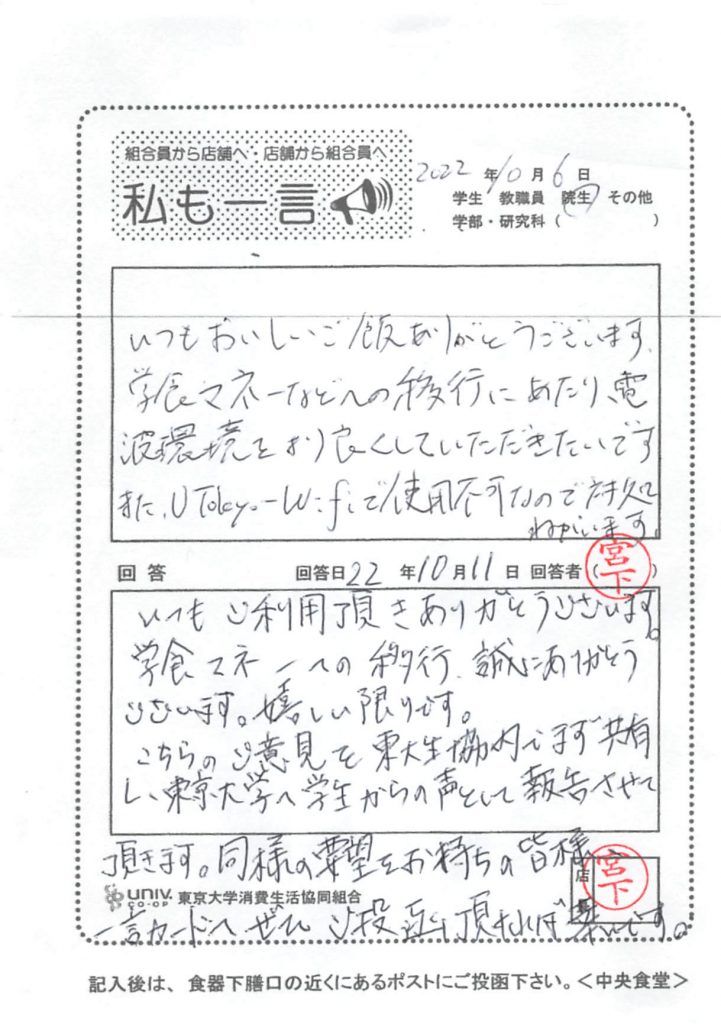 組合員から店舗へ・店舗から組合員へ
私も一言
2022 年 10 月 6 日
学生 教職員 院生 その他
学部・研究科（ ）
いつもおいしいご飯ありがとうございます。
学食マネーなどへの移行にあたり、電
波環境をより良くしていただきたいです
また、UTokyo-WiFiで使用不可なので対処
ねがいます。
回 答 回答日 22 年 10 月 11 日 回答者（宮下）
いつもご利用頂きありがとうございます。
学食マネーへの移行、誠にありがとう
ございます。嬉しい限りです。
こちらのご意見を東大生協内でまず共有
し、東京大学へ学生からの声として報告させて
頂きます。同様の要望をお持ちの皆様、
店長 宮下
UNIV. CO-OP 東京大学消費生活協同組合
一言カードへぜひご投函頂ければ幸いです。
記入後は、食器下膳口の近くにあるポストにご投函下さい。＜中央食堂＞